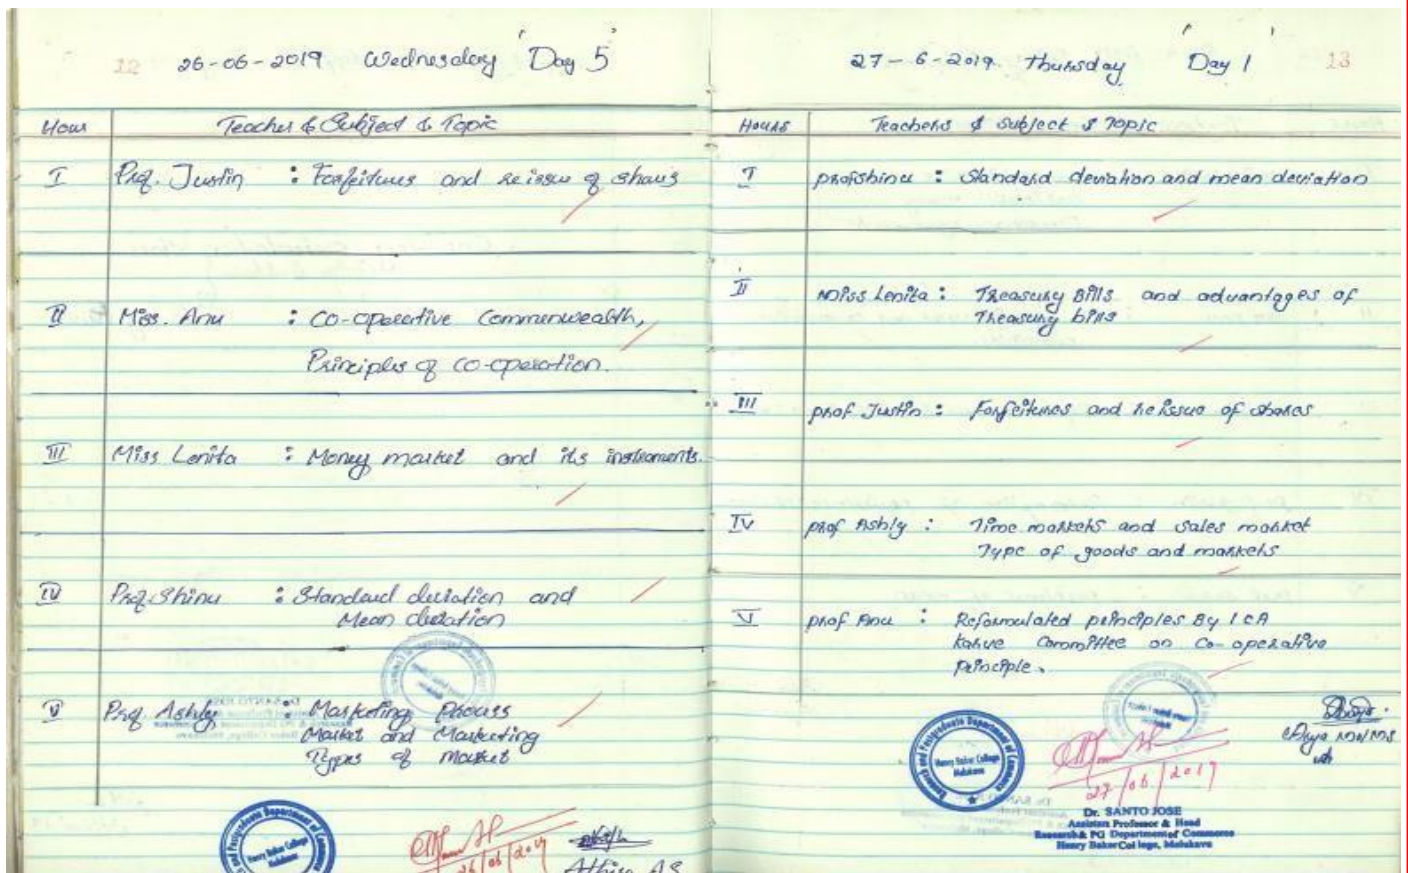 12 26-06-2019 Wednesday 'Day 5'
Hour Teacher & Subject & Topic
I Prof. Justin : Forfeitures and reissue of shares
II Miss. Anu : Co-operative Commenwealth,
Principles of co-operation.
III Miss Lenita : Money market and its instruments.
IV Prof. Shinu : Standard deviation and
Mean deviation
V Prof. Ashly : Marketing Process
Market and Marketing
Types of market
Research and Postgraduate Department of Commerce
Henry Baker College
Melukavu
26/06/2019
Athira A.S
27-6-2019 Thursday 'Day 1' 13
Hours Teachers & Subject & Topic
I prof shinu : Standard deviation and mean deviation
II Miss Lenita : Treasury Bills and advantages of
Treasury bills
III prof Justin : Forfeitures and reissue of shares
IV prof Ashly : Time markets and sales market
Type of goods and markets
V prof Anu : Reformulated principles By ICA
Karve Committee on Co-operative
principle.
Research and Postgraduate Department of Commerce
Henry Baker College
Melukavu
27/06/2019
Dr. SANTO JOSE
Assistan Professor & Head
Research & PG Department of Commerce
Henry Baker Col lege, Melukavu